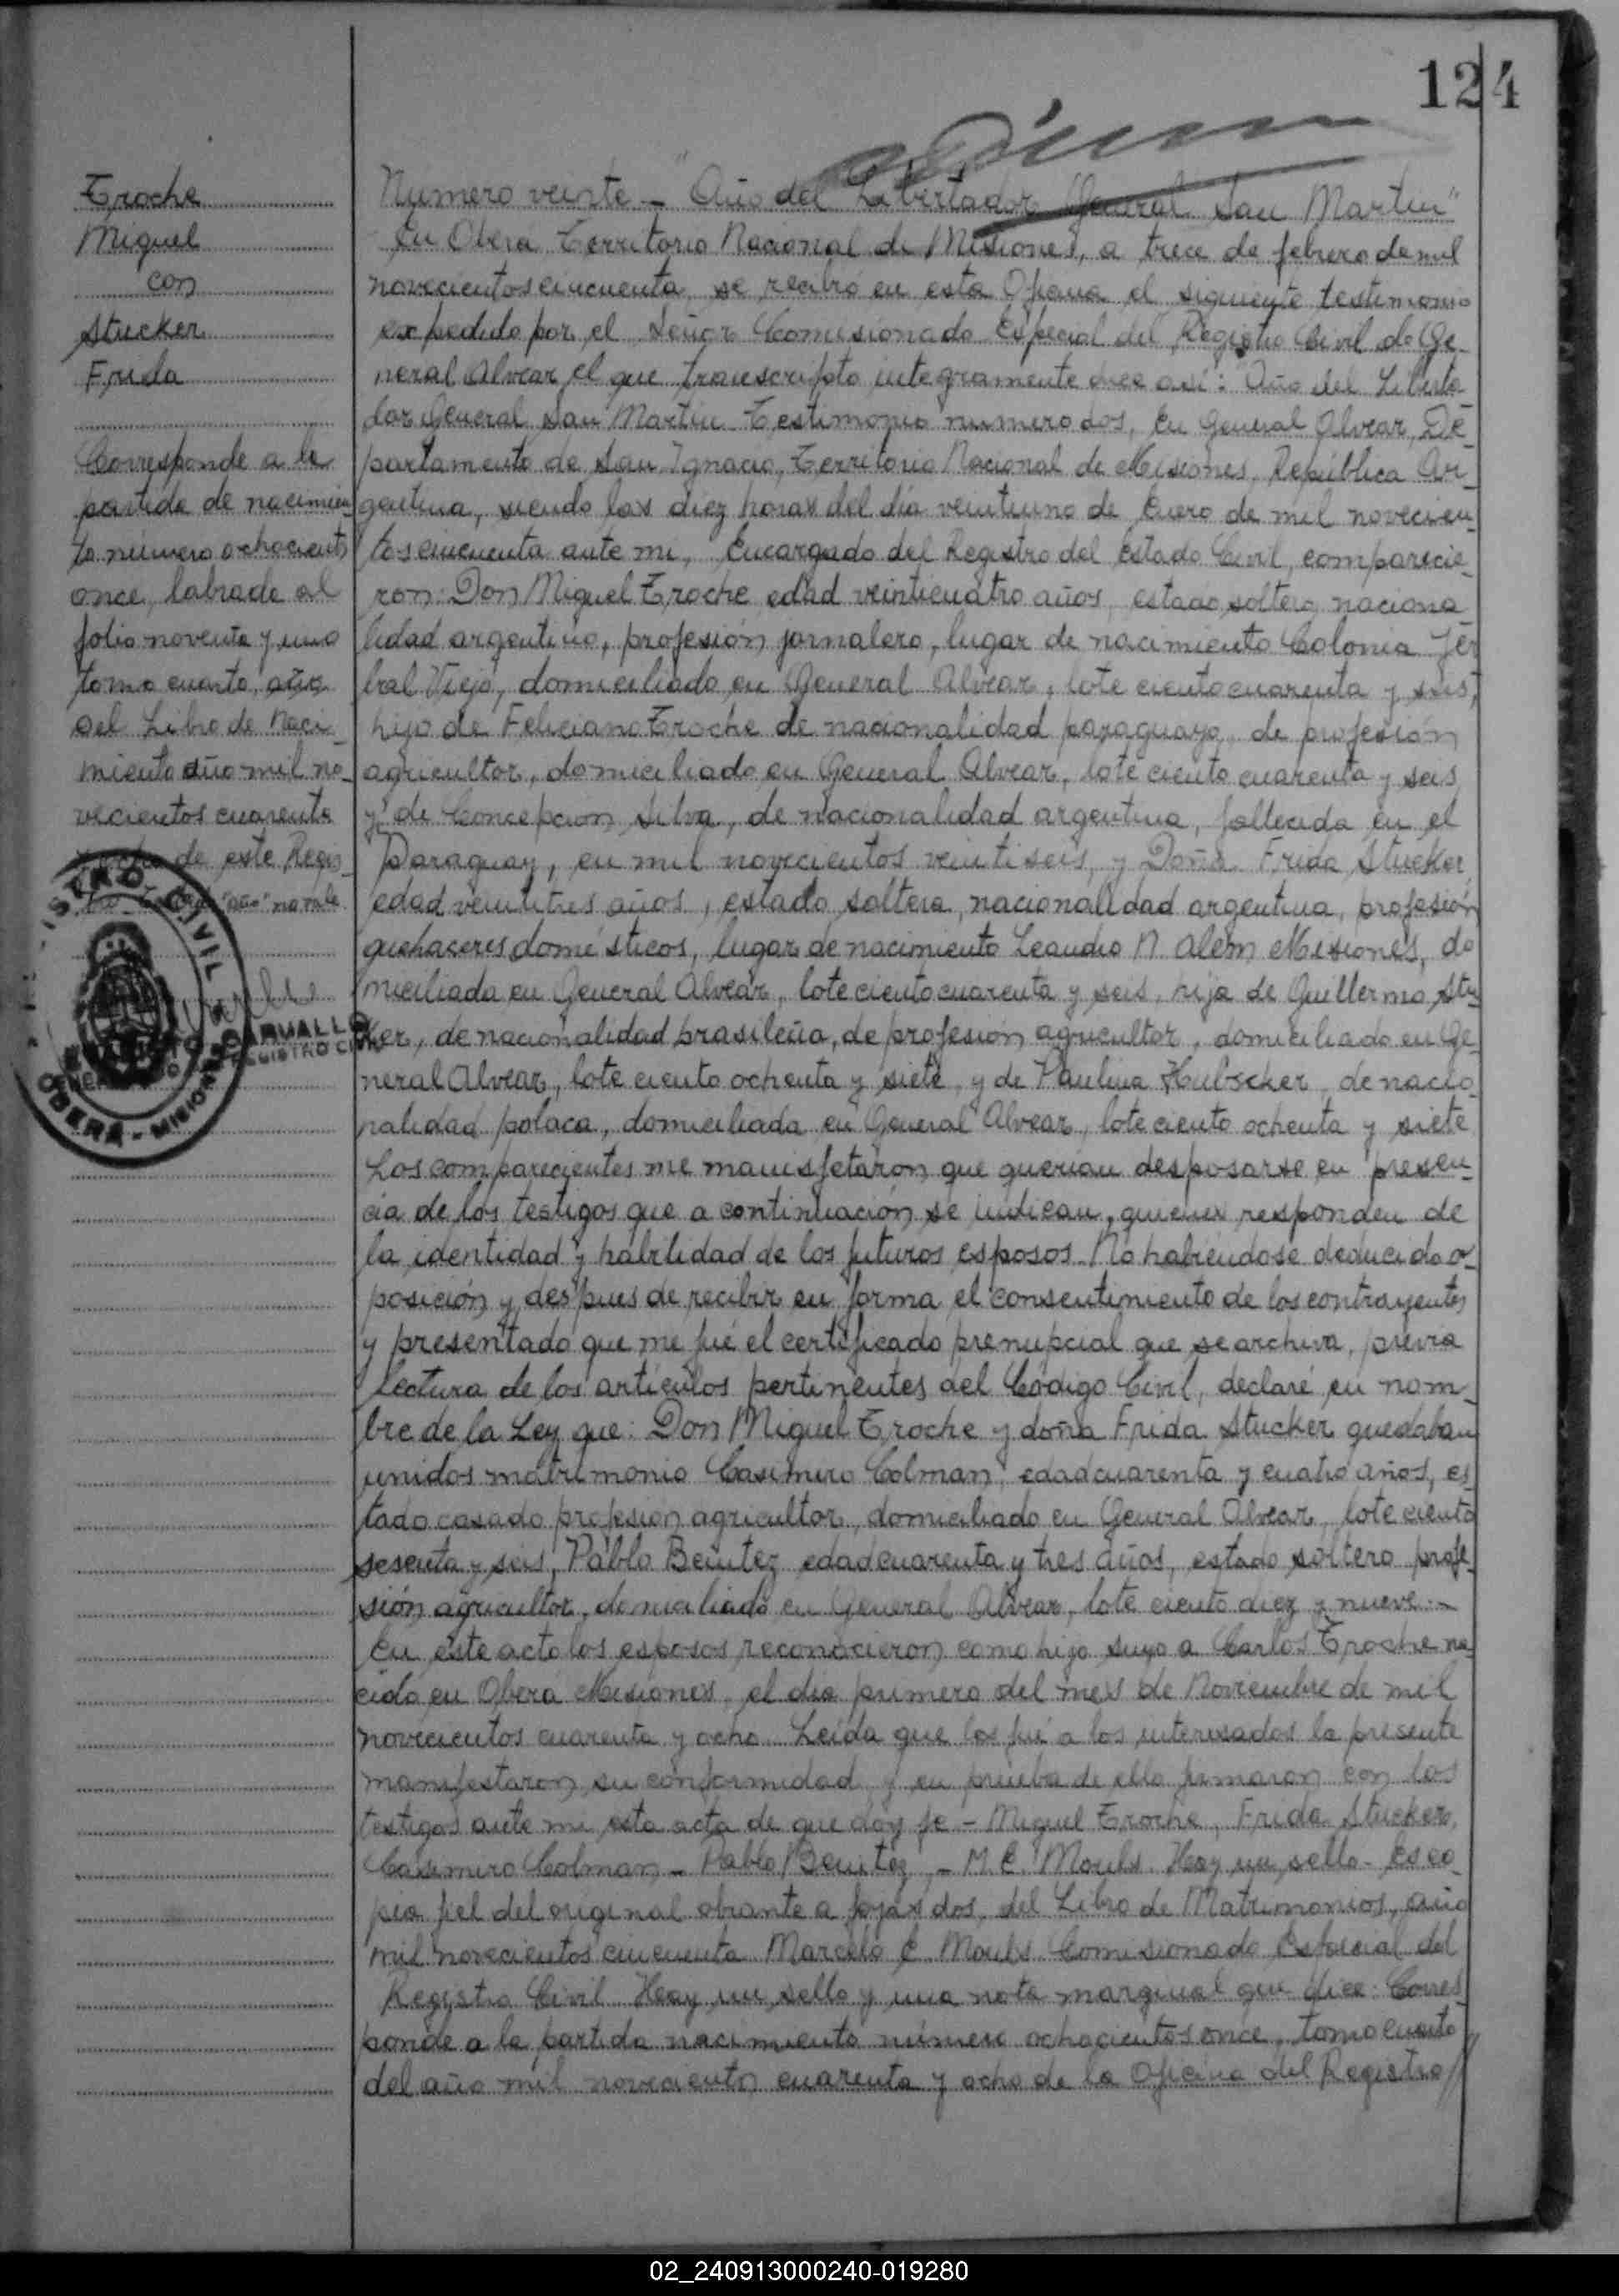 124
Troche
Miguel
con
Stucker
Frida
Corresponde a la
partida de nacimien
to número ochocientos
once, labrada al
folio noventa y uno
tomo cuarto, año
del Libro de Naci-
miento año mil no-
vecientos cuarenta
y ocho de este Regis
"año" no vale
REGISTRO CIVIL
OBERÁ - MISIONES
CARVALLO
REGISTRO CIVIL
Numero veinte - "Año del Libertador General San Martin"
En Oberá Territorio Nacional de Misiones, a trece de febrero de mil
novecientos cincuenta se recibió en esta Oficina el siguiente testimonio
expedido por el Señor Comisionado Especial del Registro Civil de Ge-
neral Alvear el que transcripto integramente dice así: "Año del Liberta-
dor General San Martin Testimonio numero dos. En General Alvear, De-
partamento de San Ignacio, Territorio Nacional de Misiones, República Ar-
gentina, siendo las diez horas del día veintiuno de Enero de mil novecien-
tos cincuenta ante mi, Encargado del Registro del Estado Civil, comparecie-
ron: Don Miguel Troche edad veinticuatro años, estado soltero, naciona-
lidad argentino, profesión jornalero, lugar de nacimiento Colonia Yer
bal Viejo, domiciliado en General Alvear, lote ciento cuarenta y seis,
hijo de Feliciano Troche de nacionalidad paraguayo de profesión
agricultor, domiciliado en General Alvear, lote ciento cuarenta y seis
y de Concepcion Silva, de nacionalidad argentina, fallecida en el
Paraguay, en mil novecientos veintiseis, y Doña Frida Stucker,
edad veintitres años, estado soltera, nacionalidad argentina, profesión
quehaceres domésticos, lugar de nacimiento Leandro N. Alem Misiones, do
miciliada en General Alvear, lote ciento cuarenta y seis, hija de Guillermo Stu-
ker, de nacionalidad brasileña, de profesión agricultor, domiciliado en Ge-
neral Alvear, lote ciento ochenta y siete, y de Paulina Hubscker, de nacio-
nalidad polaca, domiciliada en General Alvear, lote ciento ochenta y siete
Los comparecientes me manisfetaron que querian desposarse en presen-
cia de los testigos que a continuación se indican, quienes responden de
la identidad y habilidad de los futuros esposos. No habiéndose deducido o-
posición y despues de recibir en forma el consentimiento de los contrayentes
y presentado que me fué el certificado prenupcial que se archiva, previa
lectura de los artículos pertinentes del Código Civil, declaré en nom-
bre de la Ley que: Don Miguel Troche y doña Frida Stucker quedaban
unidos matrimonio Casimiro Colman, edad cuarenta y cuatro años, es-
tado casado profesión agricultor, domiciliado en General Alvear, lote ciento
sesenta y seis, Pablo Benitez edad cuarenta y tres años, estado soltero profe-
sión agricultor, domiciliado en General Alvear, lote ciento diez y nueve.-
En este acto los esposos reconocieron como hijo suyo a Carlos Troche na-
cido en Oberá Misiones, el dia primero del mes de Noviembre de mil
novecientos cuarenta y ocho. Leída que les fué a los interesados la presente
manifestaron su conformidad y en prueba de ello firmaron con los
testigos ante mi esta acta de que doy fe - Miguel Troche, Frida Stucker,
Casimiro Colman - Pablo Benitez - M. C. Hay un sello - Es co-
pia fiel del original obrante a fojas dos, del Libro de Matrimonios, año
mil novecientos cincuenta Marcelo C. Comisionado Especial del
Registro Civil Hay un sello y una nota marginal que dice: Corres-
ponde a la partida nacimiento número ochocientos once, tomo cuarto
del año mil novecientos cuarenta y ocho de la Oficina del Registro//
02_240913000240-019280